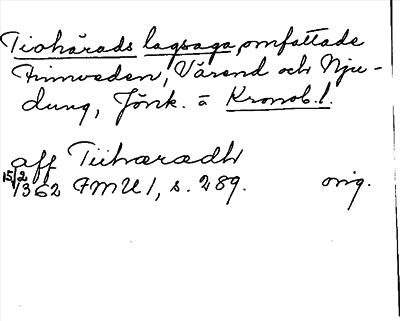 Tiohärads lagsaga, omfattade
Finnveden, Värend och Nju-
dung, Jönk. o Kronob. l.
aff Tiihæradh
15/2 1362 FMU 1, s. 289. orig.